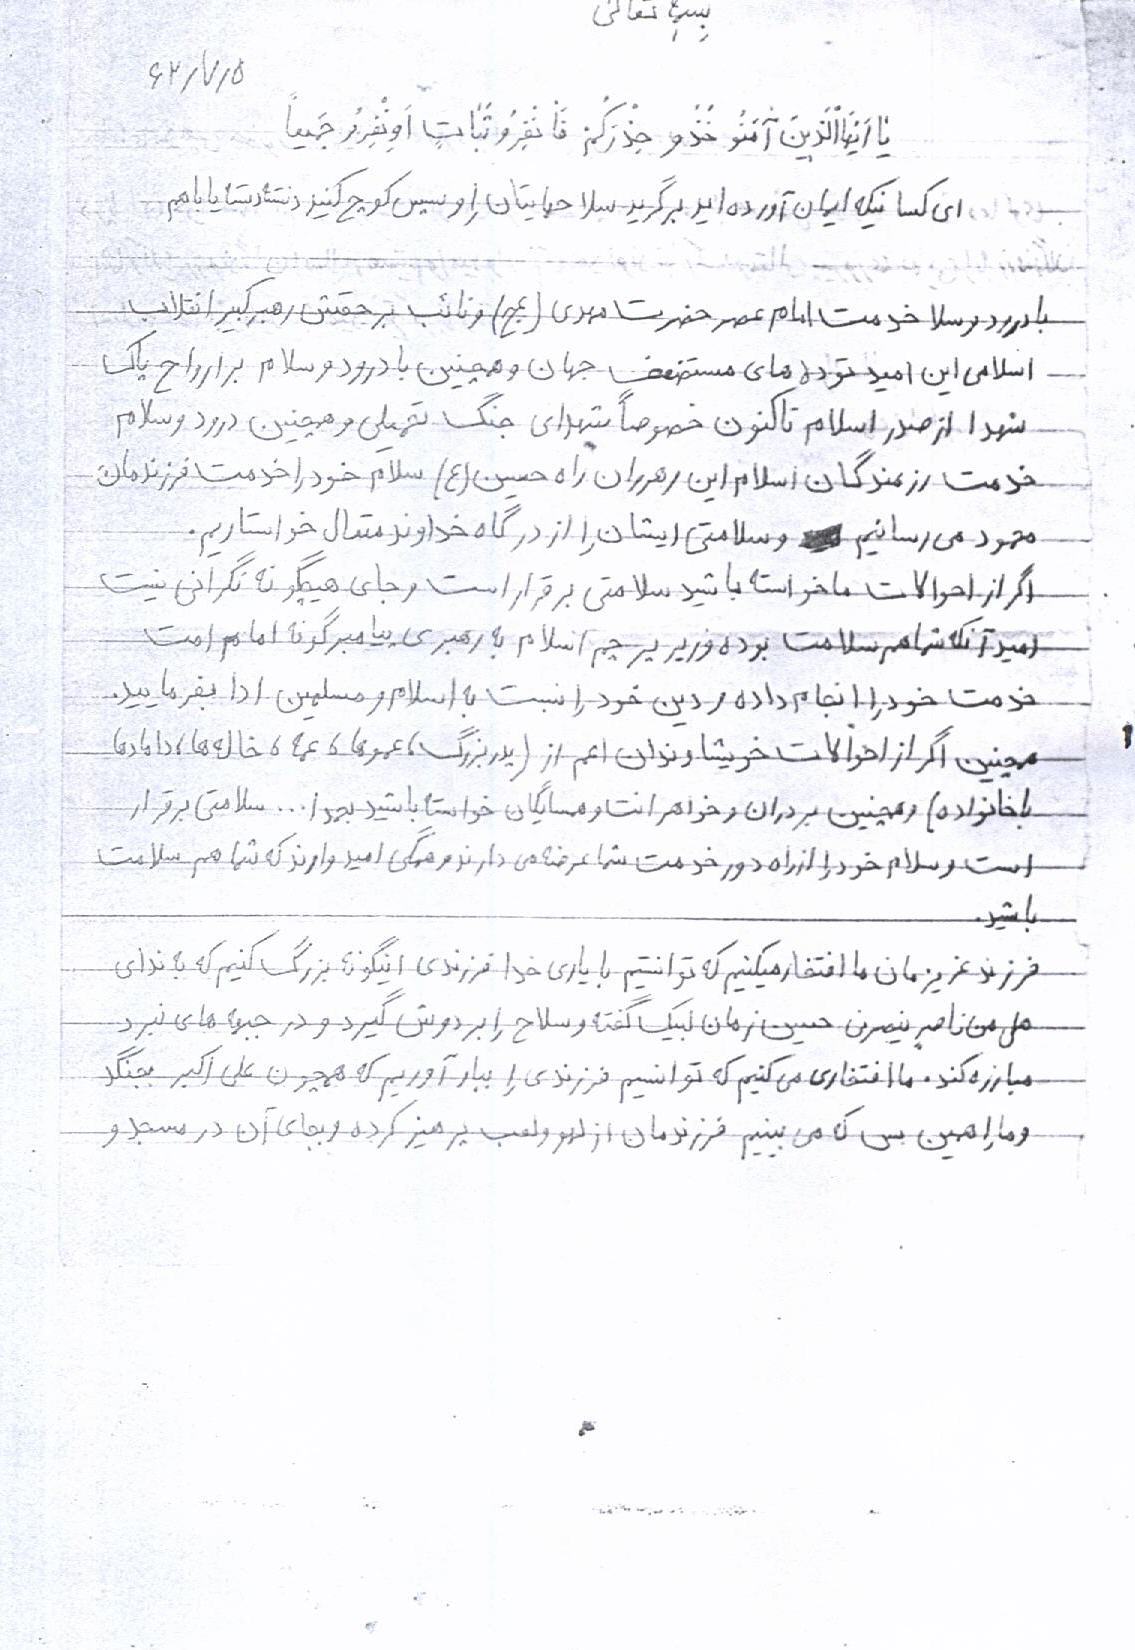 بسمه تعالی
۶۲/۷/۵
یا اَیُّهَا الَّذینَ آمَنُو خُذُو حِذْرَکُم فَانفِرُو ثُباتٍ اَوِنْفِرُو جَمیعاً
ای کسانیکه ایمان آورده اید برگرید سلاحهایتان را و سپس کوچ کنید دسته دسته یا باهم
با درود و سلا خدمت امام عصر حضرت مهدی (عج) و نائب بر حقش رهبر کبیر انقلاب
اسلامی این امید توده های مستضعف جهان و همچنین با درود و سلام بر ارواح پاک
شهدا از صدر اسلام تاکنون خصوصاً شهدای جنگ تحمیلی و همچنین درود و سلام
خدمت رزمندگان اسلام این رهروان راه حسین (ع) سلام خود را خدمت فرزندمان
محمود می رسانیم و سلامتی ایشان را از درگاه خداوند متعال خواستاریم.
اگر از احوالات ما خواسته باشید سلامتی برقرار است و جای هیچگونه نگرانی نیست
امید آنکه شما هم سلامت بوده و زیر پرچم اسلام به رهبری پیامبر گونه امام امت
خدمت خود را انجام داده و دین خود را نسبت به اسلام و مسلمین ادا بفرمایید.
همچنین اگر از احوالات خویشاوندان اعم از (پدربزرگ، عموها، عمه، خاله ها، دامادها
با خانواده) و همچنین بردران و خواهرانت و همسایگان خواسته باشید بحمدا... سلامتی برقرار
است و سلام خود را از راه دور خدمت شما عرضه می دارند و همگی امیدوارند که شما هم سلامت
باشید.
فرزند عزیزمان ما افتخار میکنیم که توانستیم با یاری خدا فرزندی اینگونه بزرگ کنیم که به ندای
هل من ناصر ینصرنی حسین زمان لبیک گفته و سلاح را بر دوش گیرد و در جبهه های نبرد
مبارزه کند. ما افتخاری می کنیم که توانسیم فرزندی را ببار آوریم که همچون علی اکبر بجنگد
و ما را همین بس که می بینیم فرزندمان از لهو و لعب پرهیز کرده و بجای آن در مسجد و